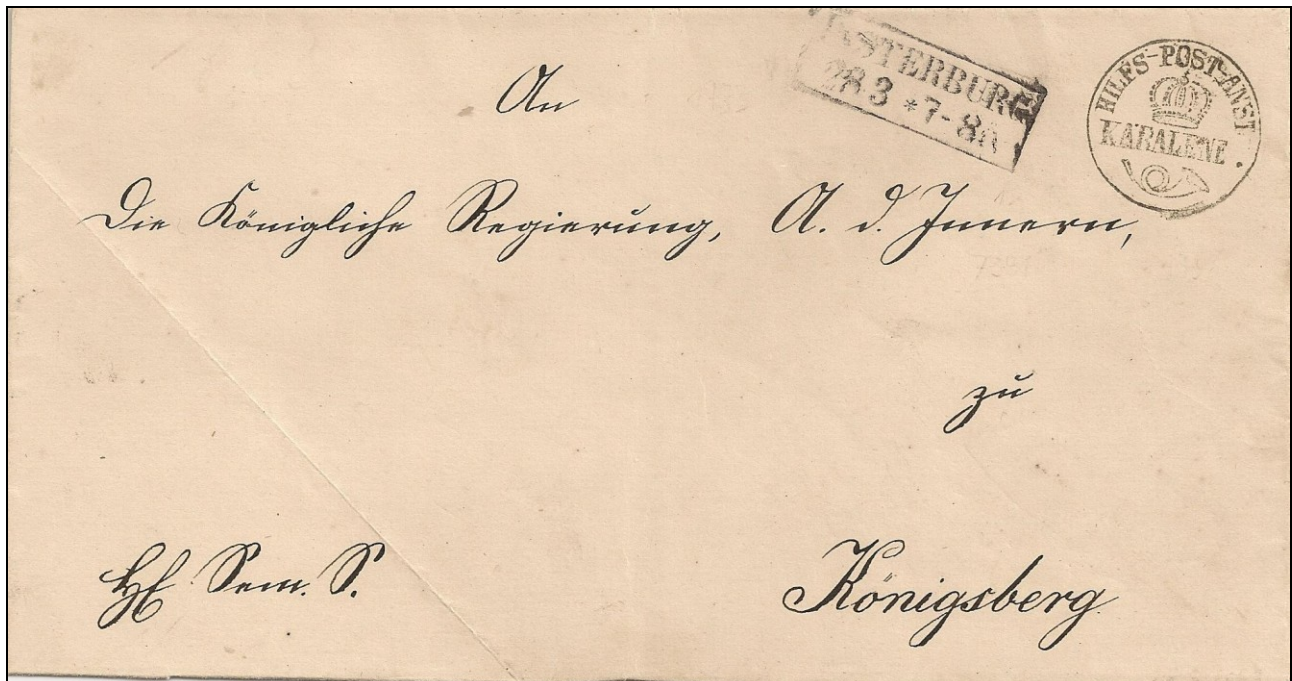 INSTERBURG
28 3 * 7-8N
HILFS-POST-ANST.
KARALENE
An
Die Königliche Regierung, A. d. Innern,
zu
Königsberg
Sem. S.